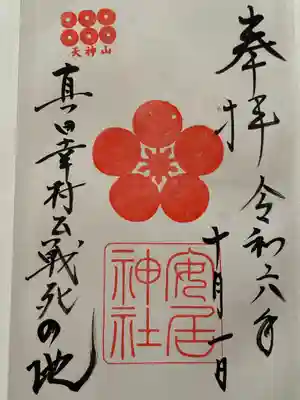 奉拝
令和六年
十月一日
天神山
安居
神社
真田幸村公戦死の地